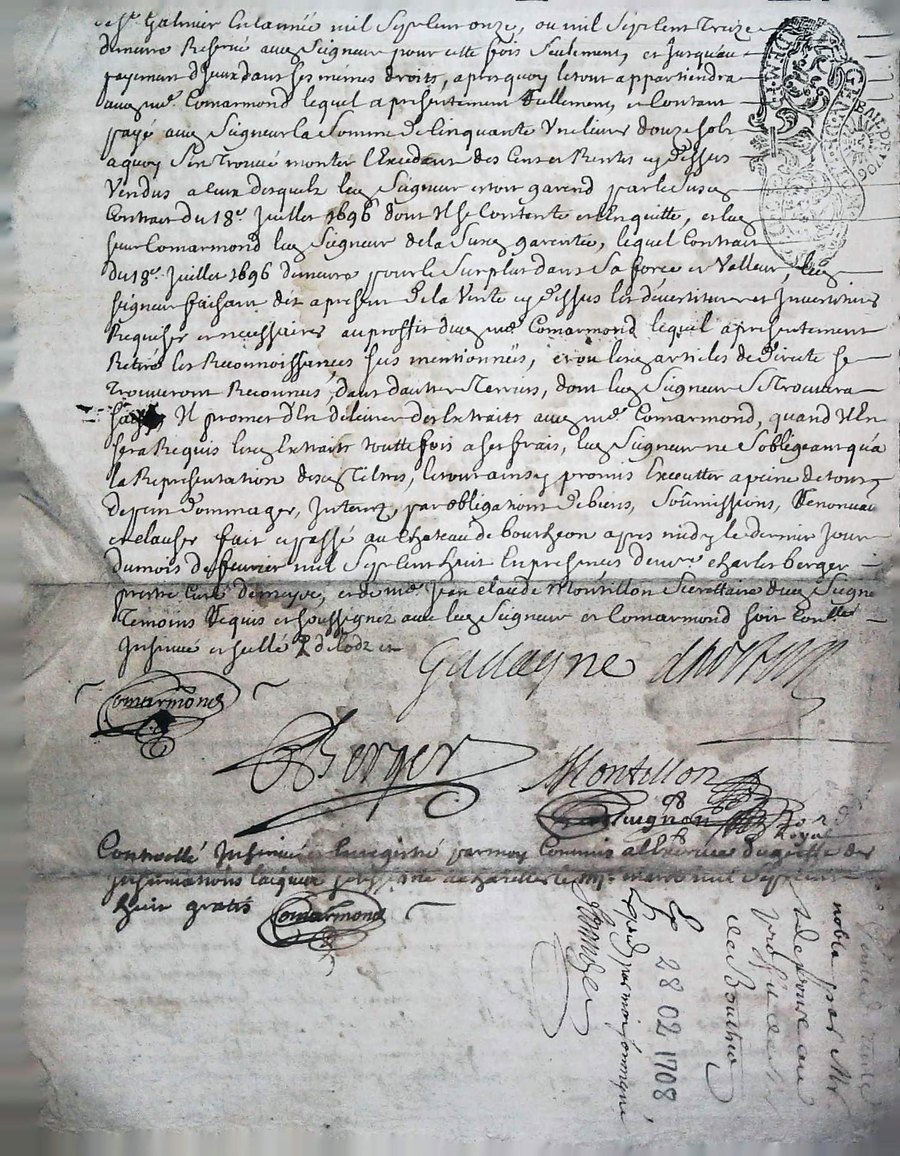 St. Galmier en lannée mil sept cent onze, ou mil sept cent treize
demeure Reservé aux Seigneur pour cette fois seulement, et jusquau
payement dIceux dans ses mêmes droits, apres quoy le tout appartiendra
aud. me. Comarmond lequel a présentement Réellement, et Contant
payé aud. Seigneur la Somme de Cinquante Une livres douze sols
a quoy Sest Trouvé monter lExcedant des Cens et Rentes cy dessus
Vendus a ceux desquels led. Seigneur estoit garend par le susd.
Contrait du 18e. Juillet 1696 dont Il se Contente et En quitte, et led.
sieur Comarmond led. Seigneur de la Susd. garentie, lequel Contrait
du 18e. Juillet 1696 demeure pour le Surplus dans Sa force et Valleur, led.
Seigneur faisant dès a present de la Vente cy dessus les devestitures et Investitures
Requises et necessaires au proffit dud. me. Comarmond lequel a présentement
Retiré les Reconnoissances sus mentionnées, et ou lesd. articles de Directe se
trouveront Reconnus, dans dautres Terriers, dont led. Seigneur se trouvera
saisy Il promet dEn délivrer des Extraits aud. me. Comarmond, quand Il En
sera Requis lesd. Extraits touttefois a ses frais, led. Seigneur ne Sobligeant qu'a
la Représentation desd. Titres, le tout ainsy promis Executter a peine de tous
despens Dommages, Interets, par obligations de biens, Soûmissions, Renonciaons
et clauses fait et passé au Château de bouthéon apres midy le dernier jour
du mois de février mil sept cent huit En présences de mre. charles berger
prestre curé de meyve, et de me. Jean claude Montillon Secrettaire dud. Seigne
temoins Requis et soussignez avec led. Seigneur et Comarmond soit Conllé
Insinué et scellé
Comarmond
Gadagne dhostun
Berger
Montillon
Royal
Controllé Insinué et Enregistré par moy Commis a lexercice du greffe des
Insinuations laiques
huit gratis Comarmond
28 02 1708
par moy soussigné
de Bouthéon
noble par Mr